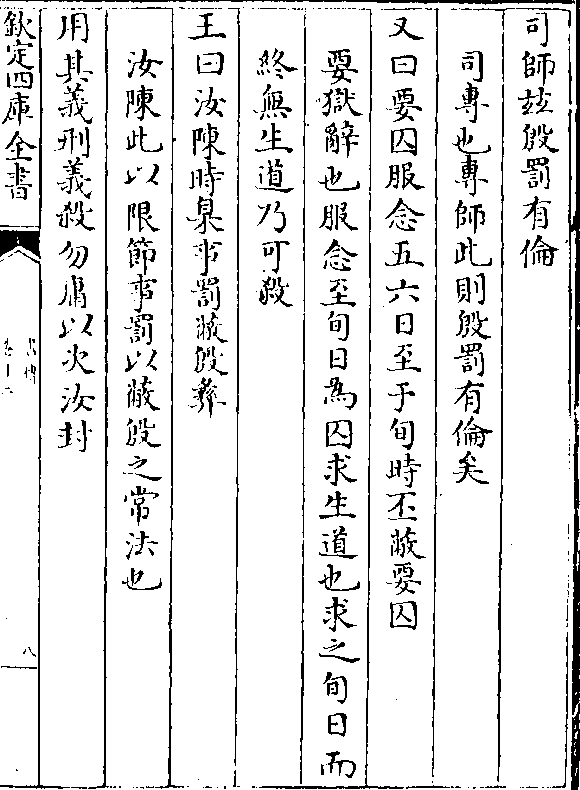 司師玆殷罰有倫
司專也專師此則殷罰有倫矣
又曰要囚服念五六日至于旬時丕蔽要囚
要獄辭也服念至旬日為囚求生道也求之旬日而
終無生道乃可殺
王曰汝陳時臬事罰蔽殷彝
汝陳此以限節事罰以蔽殷之常法也
用其義刑義殺勿庸以次汝封
欽定四庫全書
書傳
八